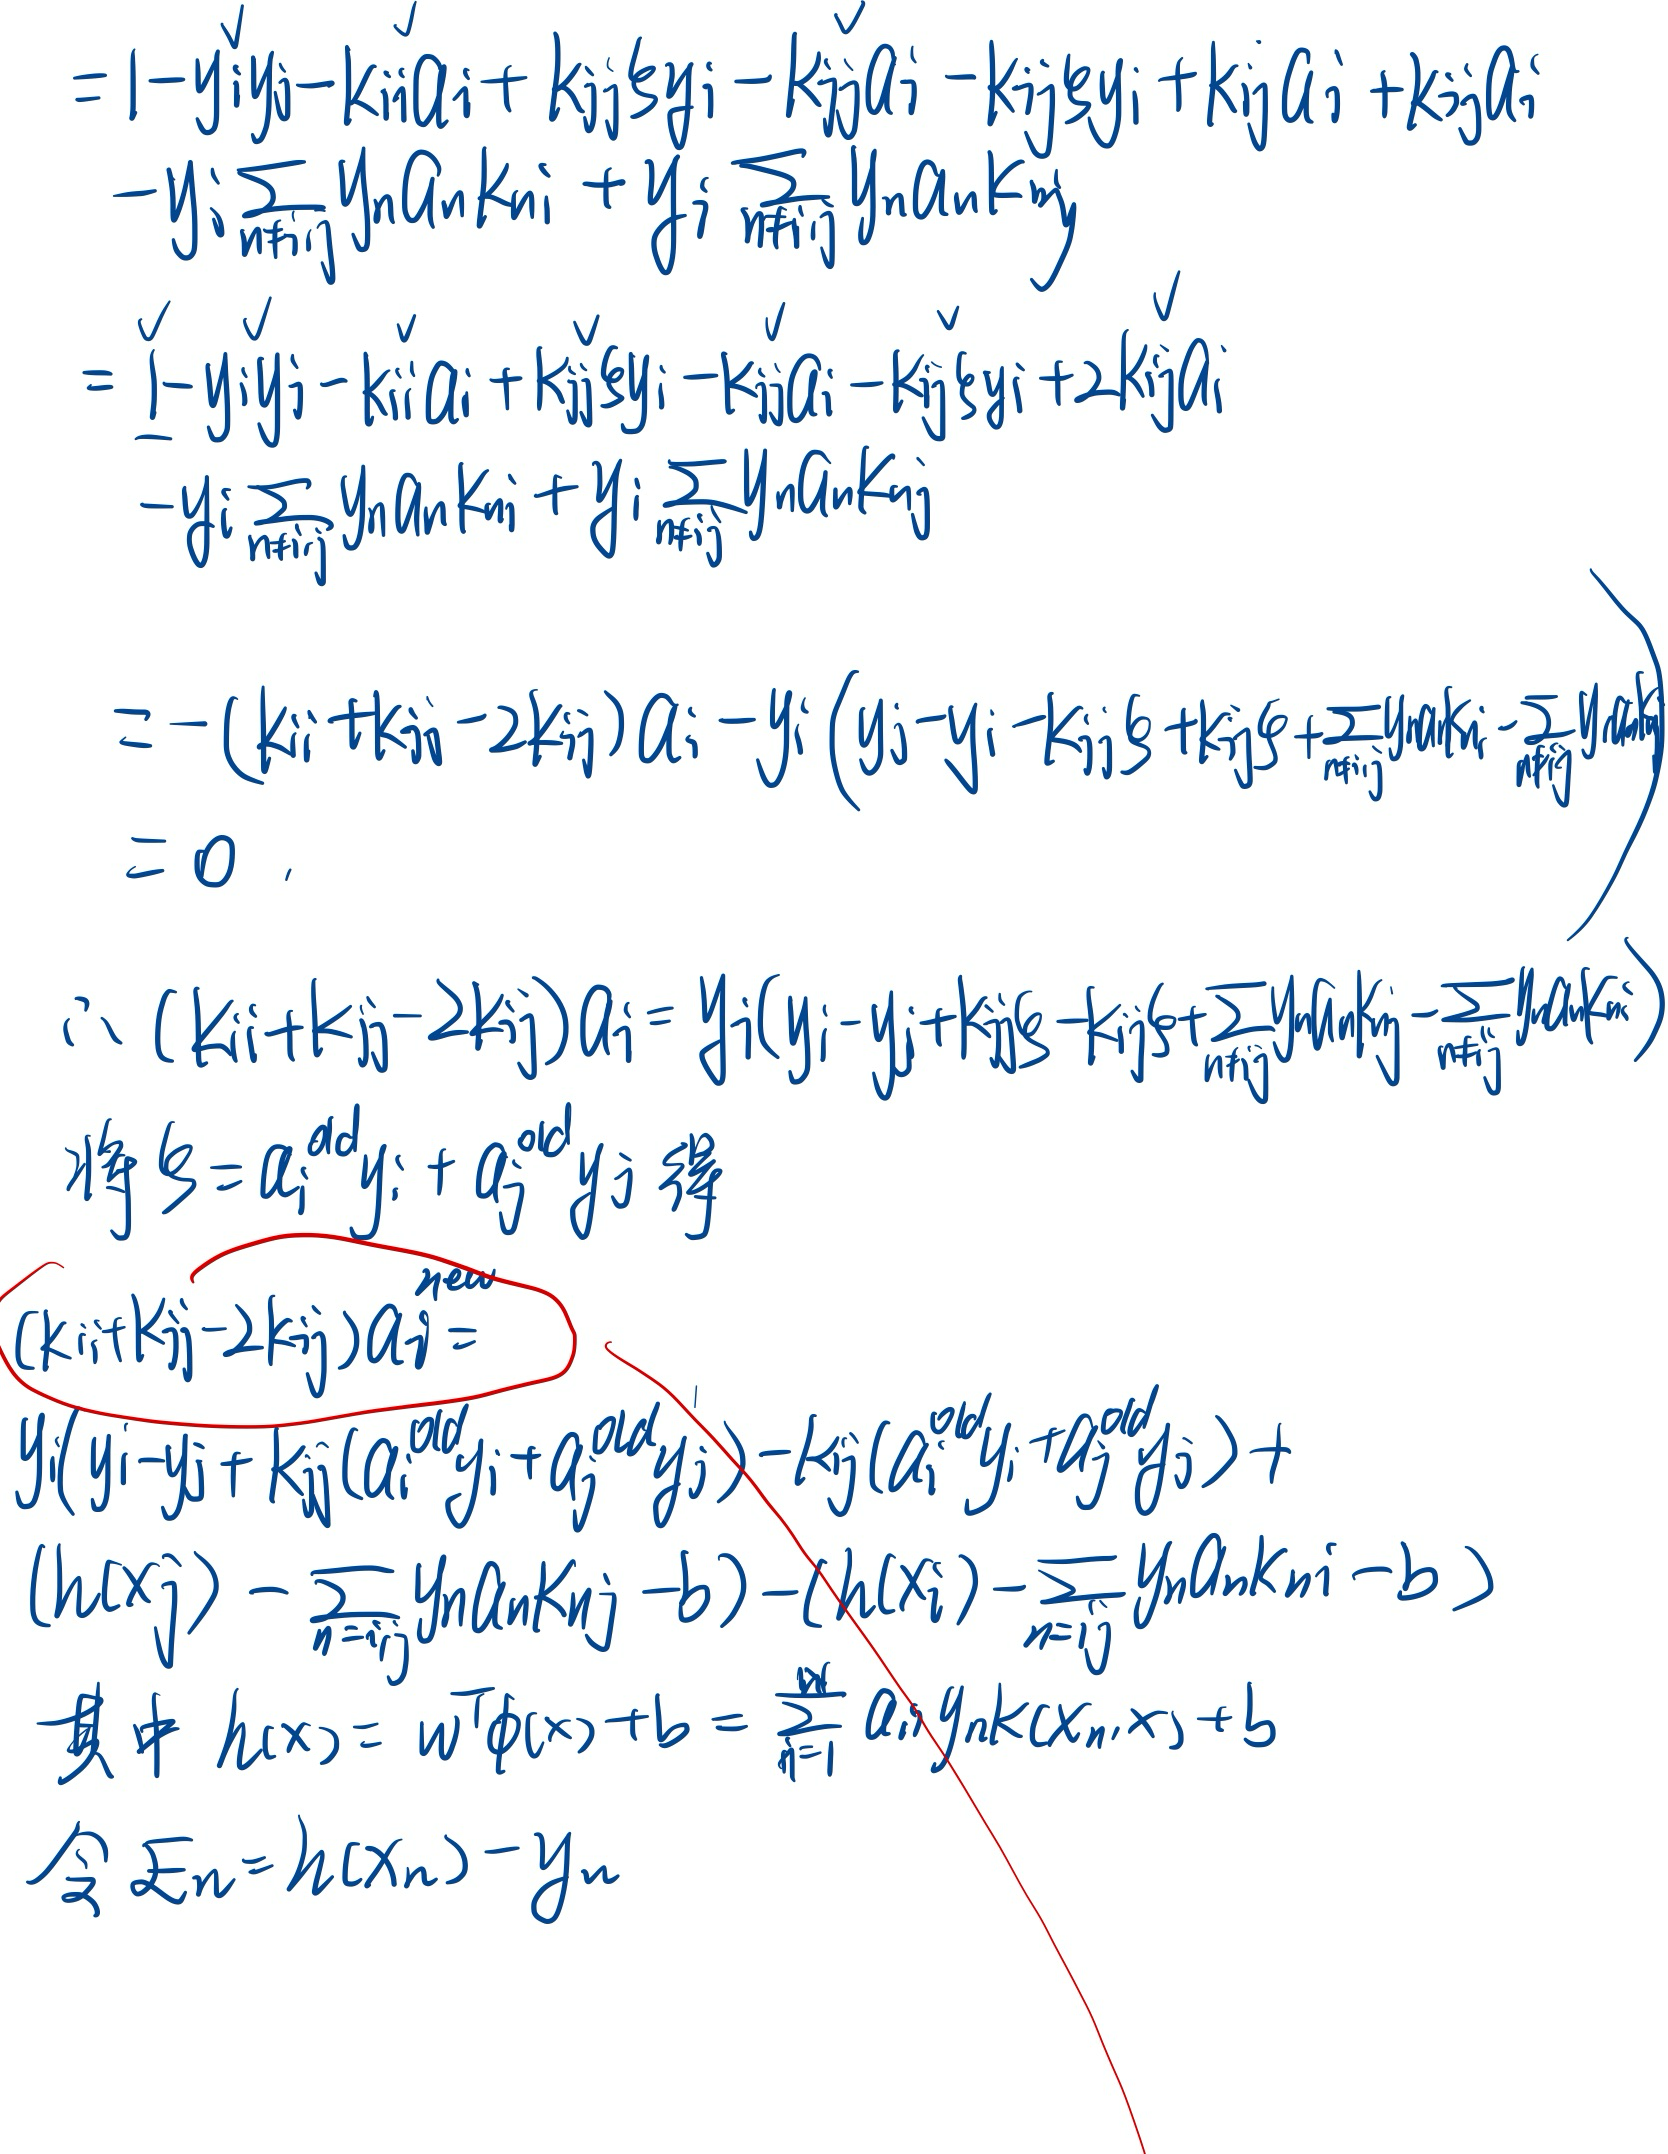 = 1 - yᵢyⱼ - kᵢᵢaᵢ + kⱼⱼξyᵢ - kⱼⱼaᵢ - kᵢⱼξyᵢ + kᵢⱼaᵢ + kᵢⱼaᵢ
- yᵢ ∑_{n≠i,j} yₙaₙkₙᵢ + yᵢ ∑_{n≠i,j} yₙaₙkₙⱼ
= 1 - yᵢyⱼ - kᵢᵢaᵢ + kⱼⱼξyᵢ - kⱼⱼaᵢ - kᵢⱼξyᵢ + 2kᵢⱼaᵢ
- yᵢ ∑_{n≠i,j} yₙaₙkₙᵢ + yᵢ ∑_{n≠i,j} yₙaₙkₙⱼ
= -(kᵢᵢ + kⱼⱼ - 2kᵢⱼ)aᵢ - yᵢ(yⱼ - yᵢ - kⱼⱼξ + kᵢⱼξ + ∑_{n≠i,j} yₙaₙkₙᵢ - ∑_{n≠i,j} yₙaₙkₙⱼ)
= 0.
∴ (kᵢᵢ + kⱼⱼ - 2kᵢⱼ)aᵢ = yᵢ(yᵢ - yⱼ + kⱼⱼξ - kᵢⱼξ + ∑_{n≠i,j} yₙaₙkₙⱼ - ∑_{n≠i,j} yₙaₙkₙᵢ)
将 ξ = aᵢ^{old} yᵢ + aⱼ^{old} yⱼ 得
(kᵢᵢ + kⱼⱼ - 2kᵢⱼ)aᵢ^{new} =
yᵢ(yᵢ - yⱼ + kⱼⱼ(aᵢ^{old} yᵢ + aⱼ^{old} yⱼ) - kᵢⱼ(aᵢ^{old} yᵢ + aⱼ^{old} yⱼ) +
(h(xⱼ) - ∑_{n=i,j} yₙaₙkₙⱼ - b) - (h(xᵢ) - ∑_{n=i,j} yₙaₙkₙᵢ - b)
其中 h(x) = wᵀφ(x) + b = ∑_{n=1} aᵢ yₙk(xₙ, x) + b
令 Σₙ = h(xₙ) - yₙ